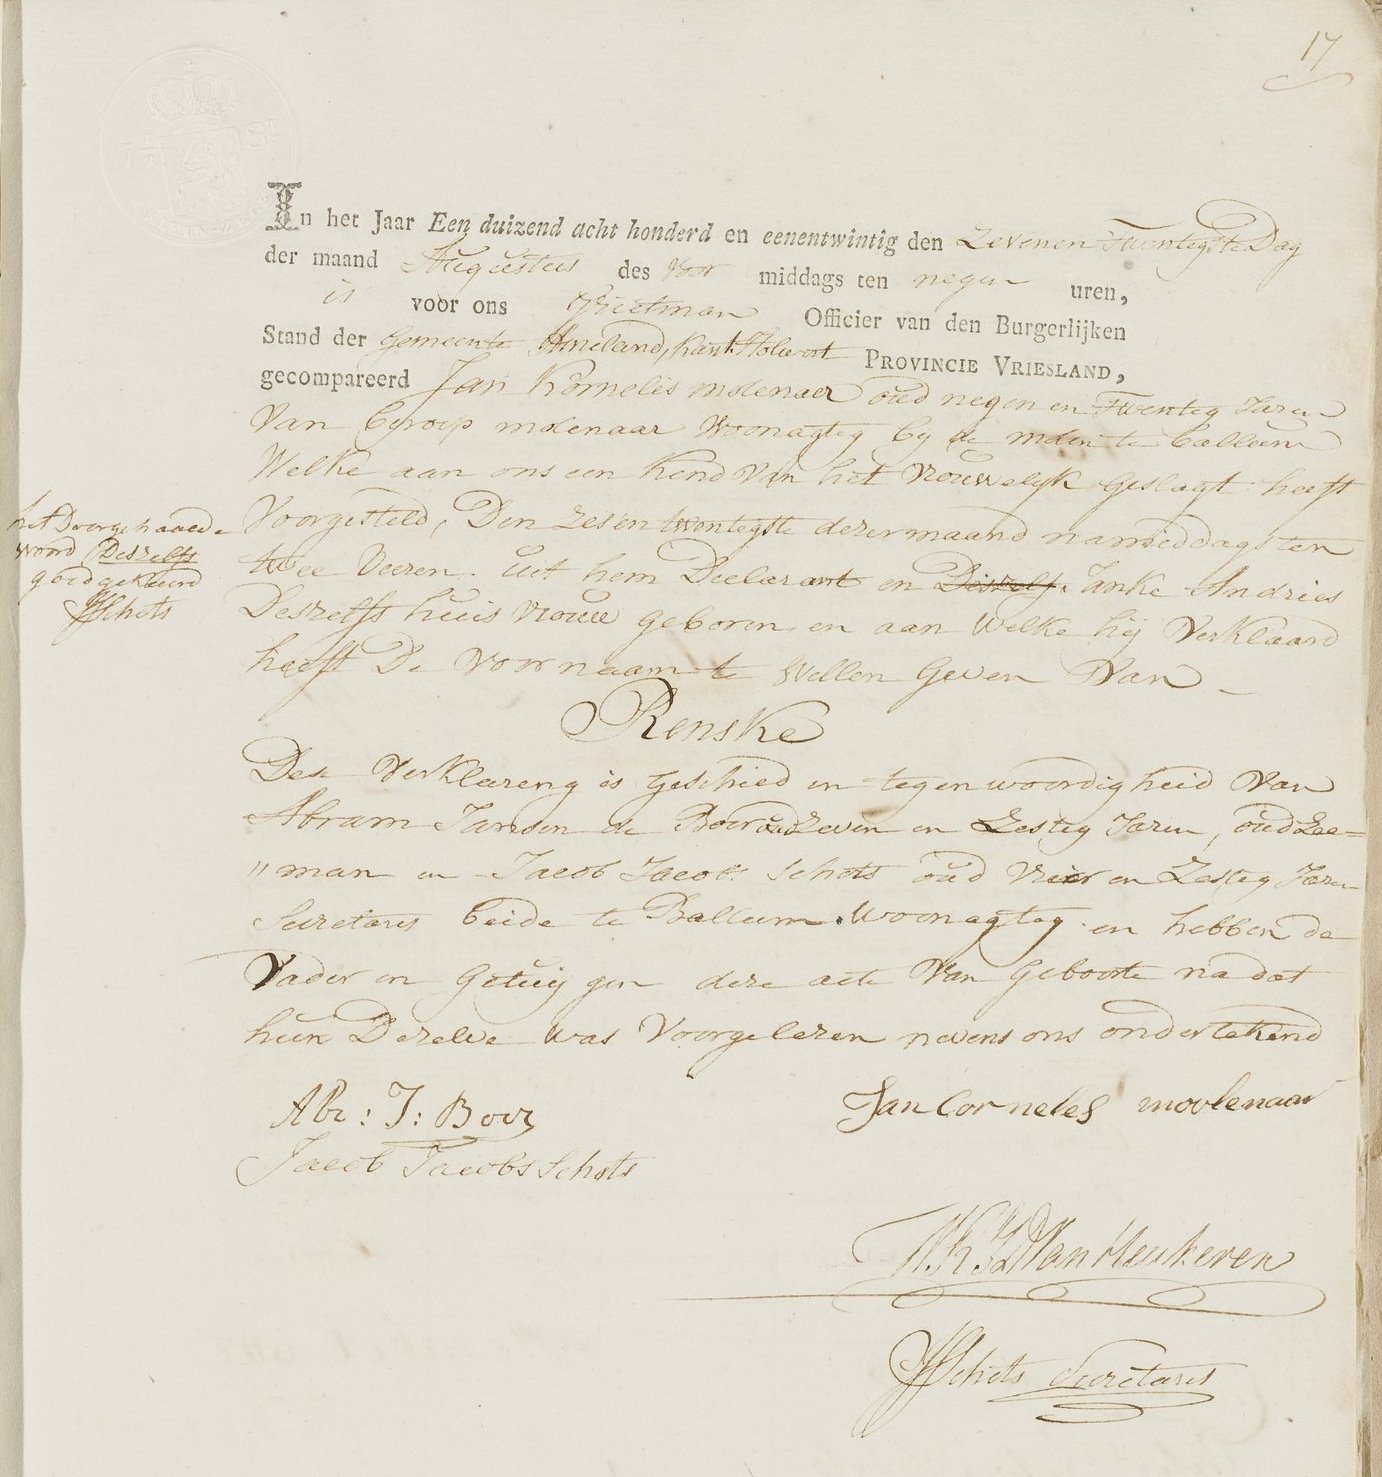 17
In het Jaar Een duizend acht honderd en eenentwintig den Zevenen Twentegste Dag
der maand Augustus des Voor middags ten negen uren,
is voor ons Grietman Officier van den Burgerlijken
Stand der Gemeente Ameland, kant. Holwert PROVINCIE VRIESLAND,
gecompareerd Jan Kornelis molenaer oud negen en Twenteg Jaren
Van beroep molenaar Woonagteg by de molen te Balleum
Welke aan ons een Kend Van het Vrouwelyk Geslagt heeft
Voorgesteld, Den zesen twentegste dezer maand namieddags ten
twee Ueren. Uit hem Declarant en Deszelfs Janke Andries
Deszelfs huis vrouw geboren en aan Welke hij Verklaard
heeft De Voornaam te Wellen Geven Van
Renske
Deze Verklareng is Geschied in tegenwoordigheid Van
Abram Jansen de Boer oud Zeven en Zesteg Jaren, oud Zee=
"man en Jacob Jacobs Schots oud Vier en Zesteg Jaren
Secretares beide te Ballum Woonagteg en hebben de
Vader en Getuijgen deze acte Van Geboorte na dat
hun Dezelve was Voorgelezen nevens ons ondertekend
het Doorgehaalde
woord Deszelfs
goedgekeurd
JJSchots
Abr: J: Boer
Jan Corneles moolenaar
Jacob Jacobs Schots
Van Heukeren
JJSchots Secretares